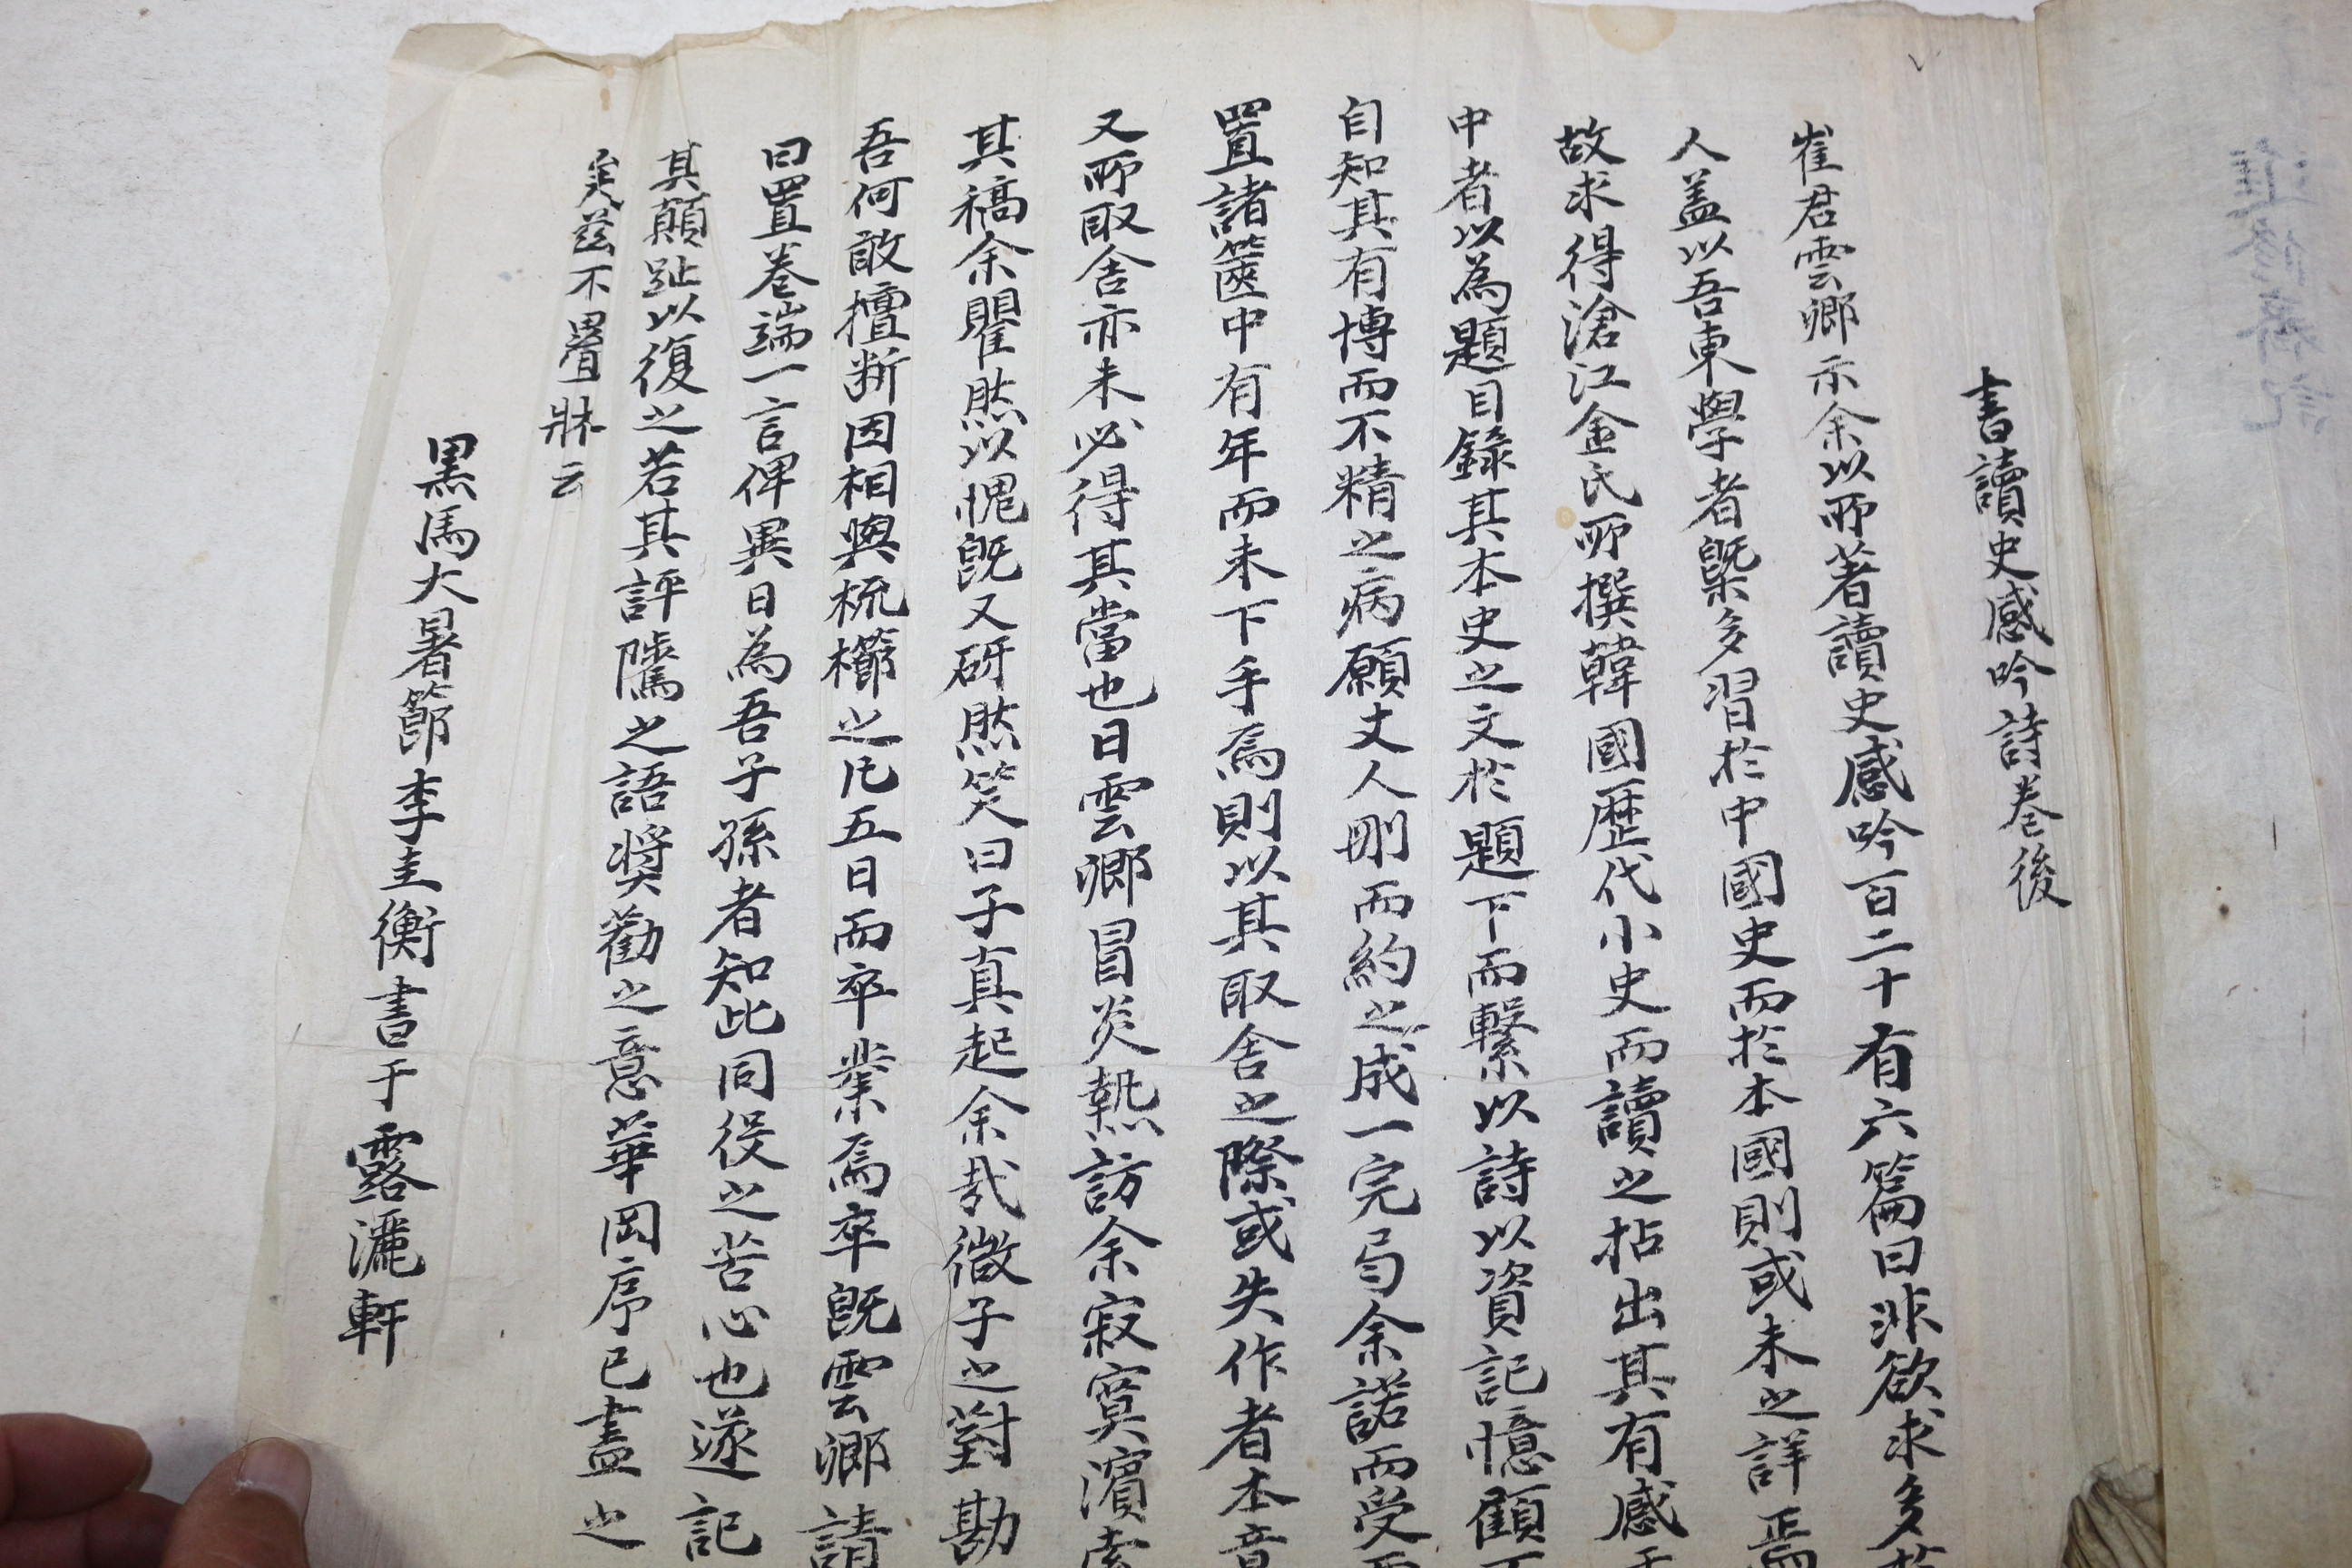 書讀史感吟詩卷後
崔君雲鄉示余以所著讀史感吟百二十有六篇曰非欲求多於
人盖以吾東學者槩多習於中國史而於本國則或未之詳焉
故求得滄江金氏所撰韓國歷代小史而讀之拈出其有感于
中者以為題目錄其本史之文於題下而繫以詩以資記憶顧
自知其有博而不精之病願丈人刪而約之成一完局余諾而受
置諸篋中有年而未下手焉則以其取舍之際或失作者本意
又所取舍亦未必得其當也日雲鄉冒炎熱訪余寂寞濱索
其稿余瞿然以愧旣又砑然笑曰子真起余哉微子之對勘
吾何敢擅断因相與梳櫛之凡五日而卒業焉卒旣雲鄉請
曰置卷端一言俾異日為吾子孫者知此同役之苦心也遂記
其顛趾以復之若其評隲之語奬勸之意華岡序已盡之
矣玆不疊牀云
黑馬大暑節李圭衡書于露灑軒